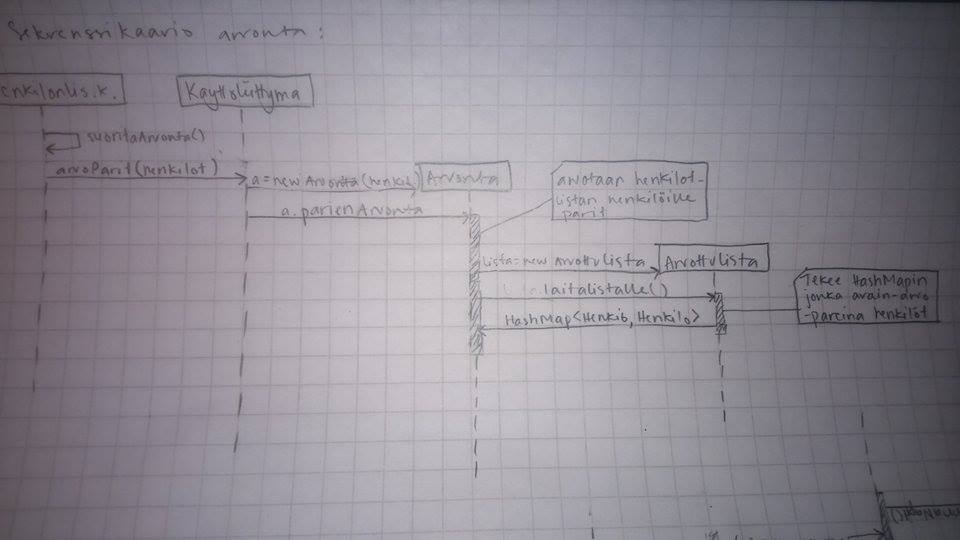 Sekvenssikaavio arvonta:
enkilonlis.k.
Kayttoliittyma
suoritaArvonta()
arvoParit(henkilot)
a=new Arvonta(henkil
Arvonta
a.parienArvonta
arvotaan henkilot-
listan henkilöille
parit
lista=new Arvottulista
Arvottulista
.laitalistalle()
HashMap<Henkilo, Henkilo>
Tekee HashMapin
jonka avain-arvo
-pareina henkilöt